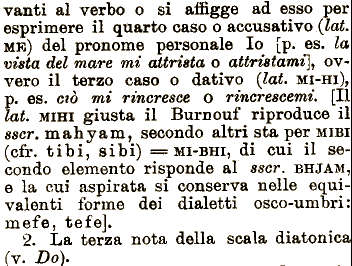 vanti al verbo o si affigge ad esso per
esprimere il quarto caso o accusativo (lat.
ME) del pronome personale Io [p. es. la
vista del mare mi attrista o attristami], ov-
vero il terzo caso o dativo (lat. MI-HI),
p. es. ciò mi rincresce o rincrescemi. [Il
lat. MIHI giusta il Burnouf riproduce il
sscr. mahyam, secondo altri sta per MIBI
(cfr. tibi, sibi) = MI-BHI, di cui il se-
condo elemento risponde al sscr. BHJAM,
e la cui aspirata si conserva nelle equi-
valenti forme dei dialetti osco-umbri:
mefe, tefe].
2. La terza nota della scala diatonica
(v. Do).